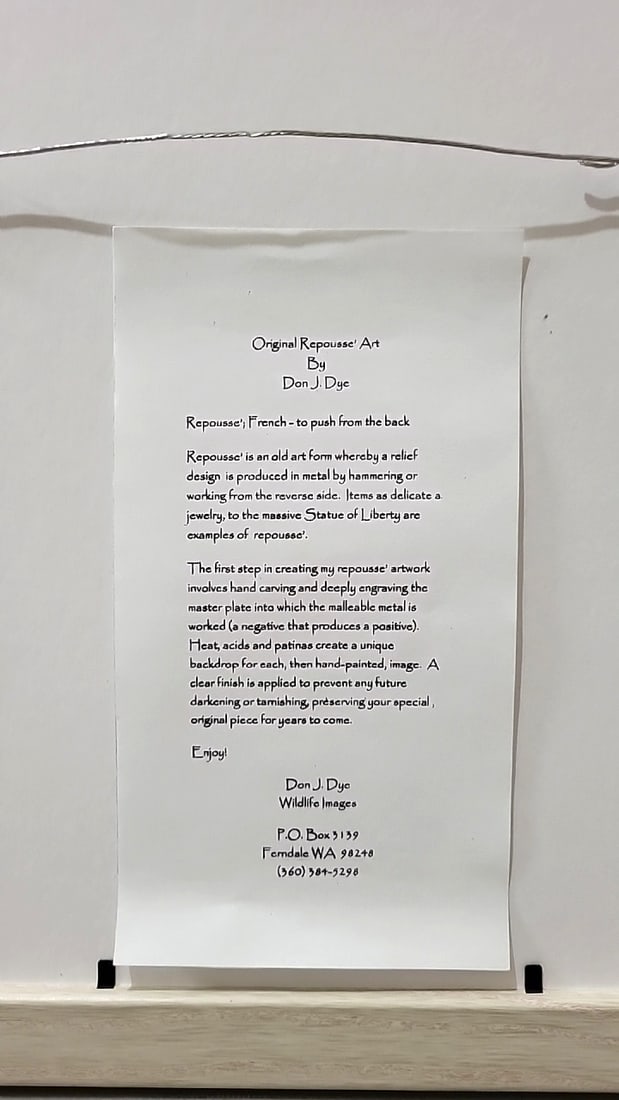 Original Repousse' Art
By
Don J. Dye
Repousse'; French - to push from the back
Repousse' is an old art form whereby a relief
design is produced in metal by hammering or
working from the reverse side. Items as delicate a
jewelry, to the massive Statue of Liberty are
examples of repousse'.
The first step in creating my repousse' artwork
involves hand carving and deeply engraving the
master plate into which the malleable metal is
worked (a negative that produces a positive).
Heat, acids and patinas create a unique
backdrop for each, then hand-painted, image. A
clear finish is applied to prevent any future
darkening or tarnishing, preserving your special,
original piece for years to come.
Enjoy!
Don J. Dye
Wildlife Images
P.O. Box 3139
Ferndale WA 98248
(360) 384-3298